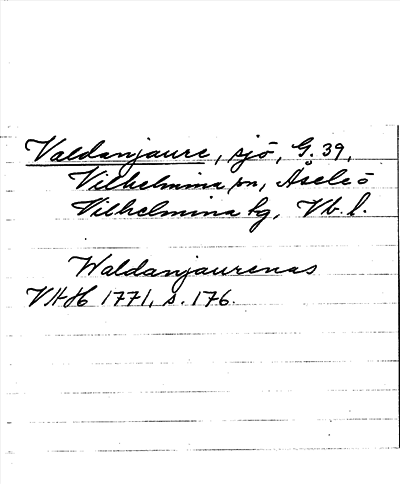 Valdanjaure, sjö, G. 39,
Vilhelmina sn, Åsele o
Vilhelmina tg, Vb. l.
Waldanjaurenas
VHH 1771, s. 176.